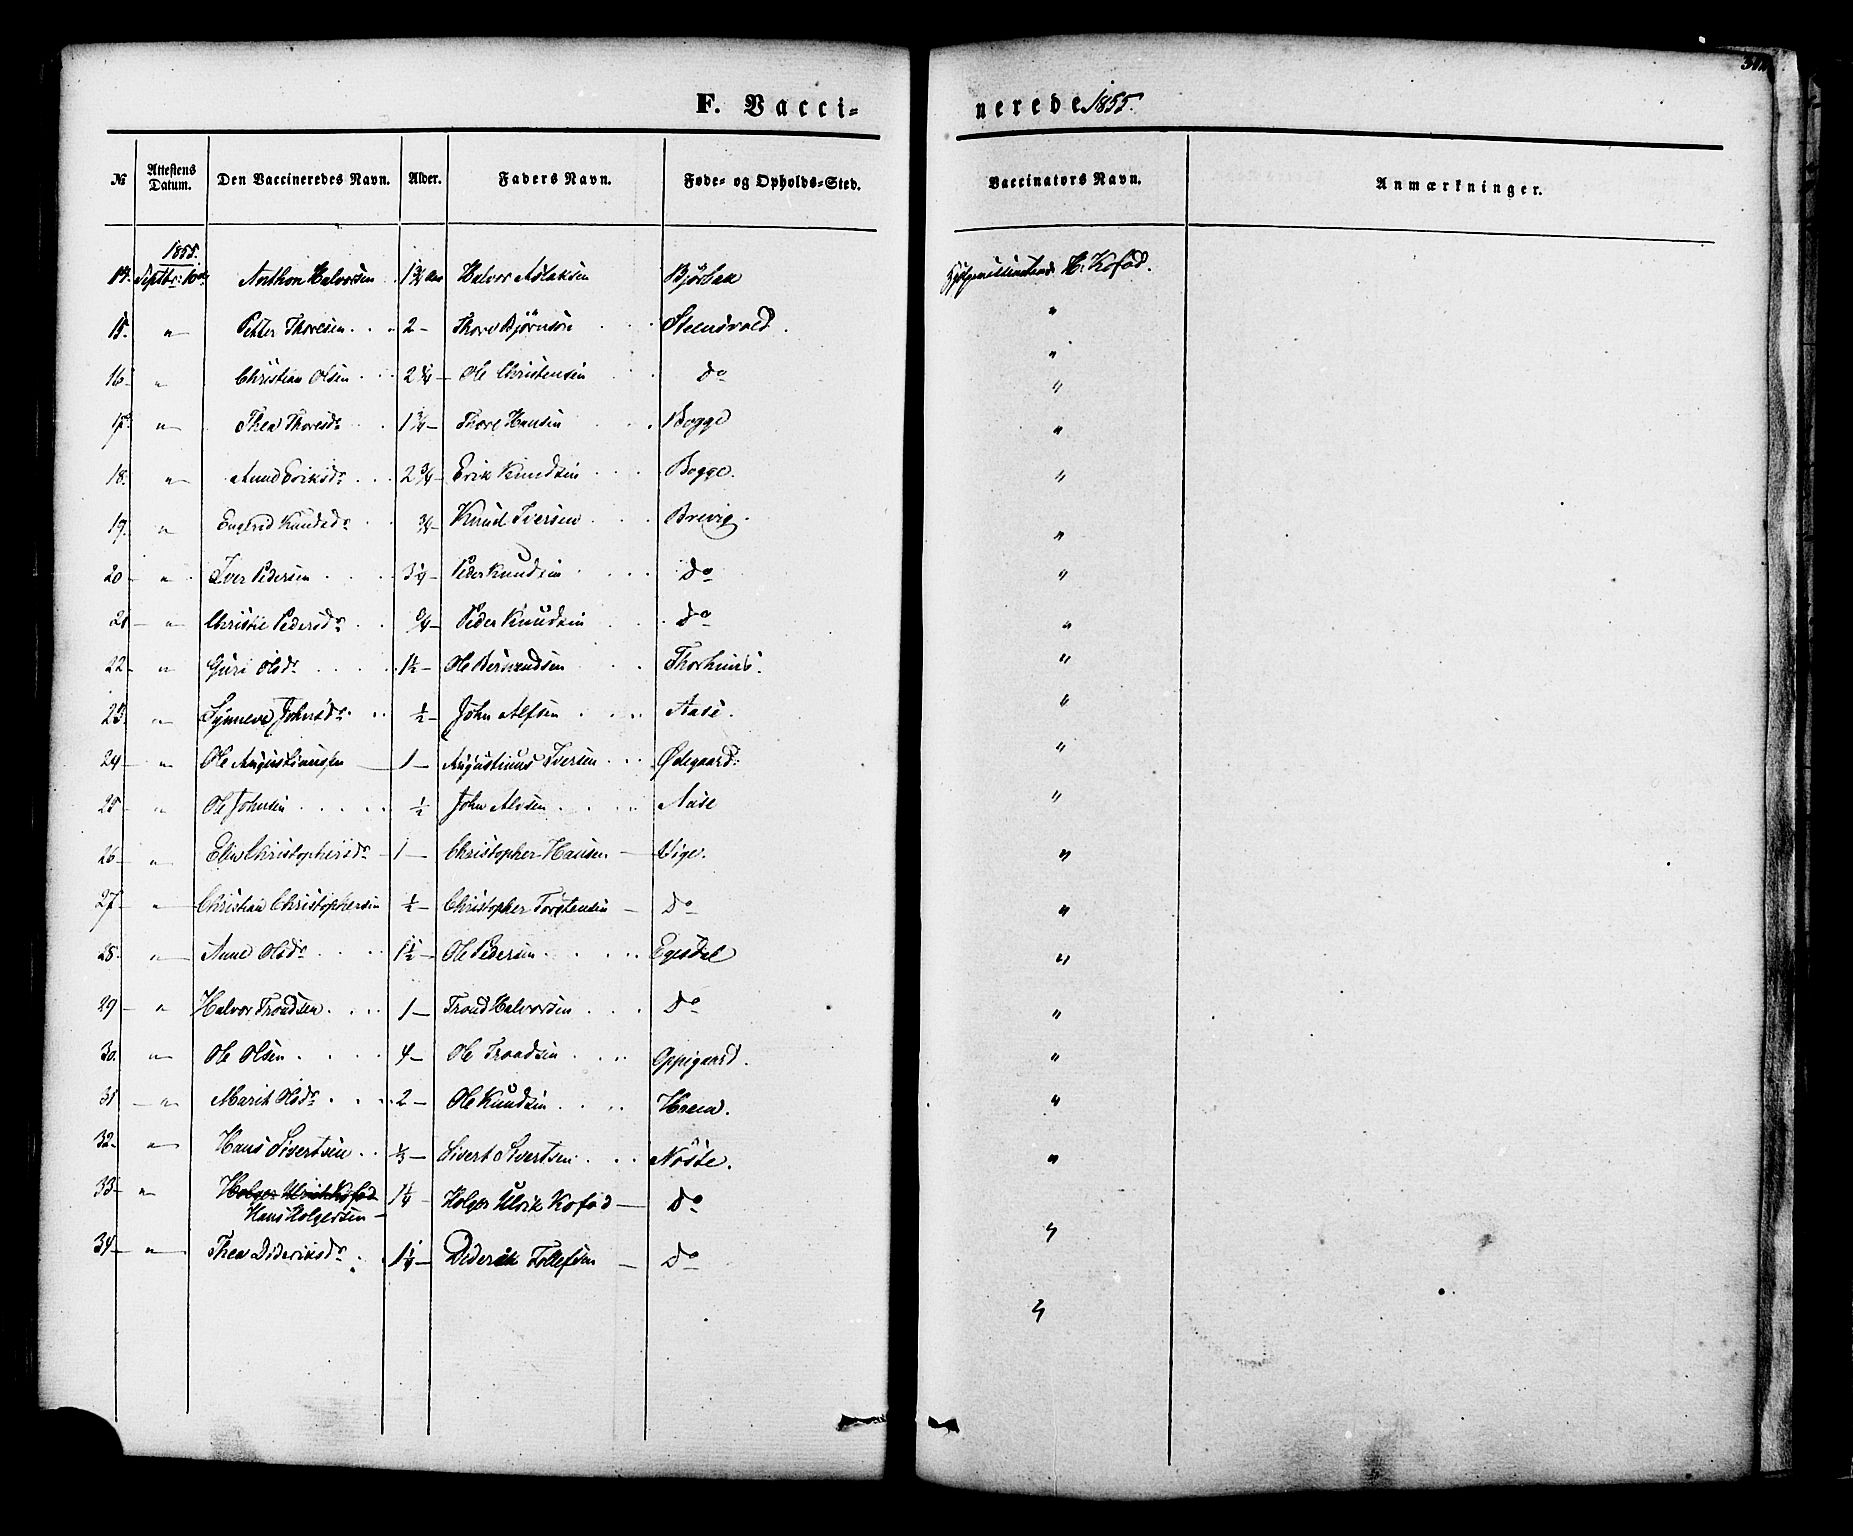 F. Vacci-nerede 1855.
№ Attestens Datum. Den Vaccineredes Navn. Alder. Faders Navn. Føde- og Opholds-Sted. Vaccinators Navn. Anmærkninger.
1855.
14. Septbr: 10de Anthon Halvorsen 1 3/4 Aar Halvor Aslaksen H: Kofod.
15. " Petter Thoresen 2 - Thore Bjørnsen Steensvold. "
16. " Christian Olsen 2 1/4 - Ole Christensen Do "
17. " Thea Thoresdr 1 3/4 - Thore Hansen Bogge "
18. " Anne Eriksdr 2 3/4 - Erik Knudsen Bogge. "
19. " Knudsdr 3/4 - Knud Iversen Brevig. "
20 - " Iver Pedersen Peder Knudsen Do "
21 - " Christie Pedersdr Peder Knudsen Do "
22 - " Guri Olsdr 1 1/2 - Ole Berntsen "
23. " Synneva Johnsdr 1/2 - John Alfsen Aase. "
24 - " Ole Augustinussen 1 - Augustinus Iversen Ødegaard. "
25 - " Ole Johnsen 1/2 John Alvsen Aase "
26 - " Elen Christophersdr 1 - Christopher Hansen - Vige. "
27 - " Christian Christophersen 1/2 - Christopher Torstensen - Do "
28. " Anne Olsdr 1 1/2 - Ole Pedersen Egesdal "
29 - " Halvor Trondsen 1 - Trond Halvorsen Do "
30. " Ole Olsen 4 - Ole Trondsen Oppigaard. "
31 - " Marit Olsdr 2 - Ole Knudsen "
32 - " Hans Sivertsen 1/3 - Sivert Sivertsen Nøste. "
33 - " Holger Ulrich Kofod 1 1/4 - Holger Ulrik Kofod - Do "
Hans Holgersen -
34 - " Thea Dideriksdr 1 1/4 - Diderik Tollefsen - Do "